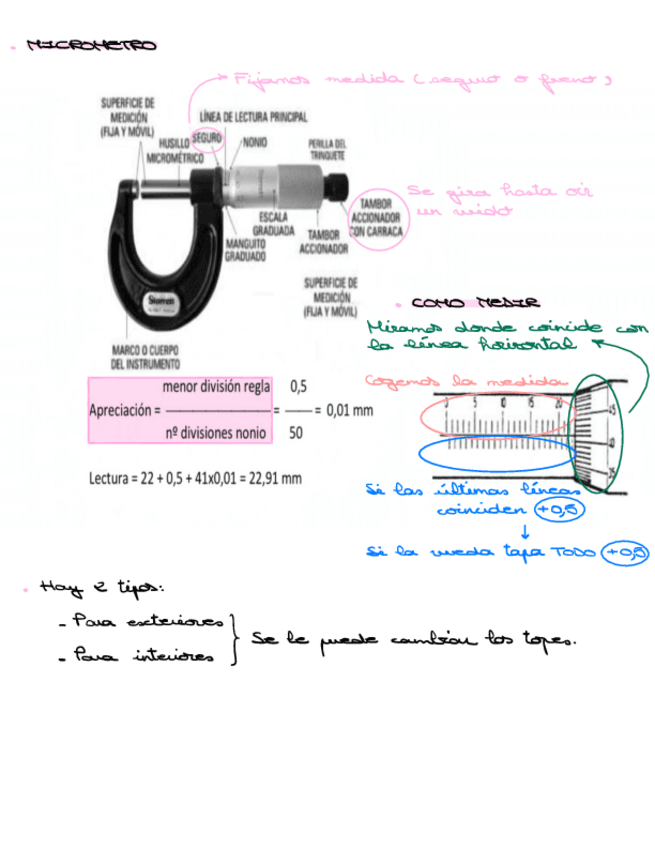 . MICROMETRO
Fijamos medida (seguro o freno)
SUPERFICIE DE
MEDICIÓN
(FIJA Y MÓVIL)
LÍNEA DE LECTURA PRINCIPAL
HUSILLO
MICROMÉTRICO
SEGURO
NONIO
PERILLA DEL
TRINQUETE
Se gira hasta oir
un ruido
TAMBOR
ACCIONADOR
CON CARRACA
ESCALA
GRADUADA
TAMBOR
ACCIONADOR
MANGUITO
GRADUADO
SUPERFICIE DE
MEDICIÓN
(FIJA Y MÓVIL)
Starrett
MARCO O CUERPO
DEL INSTRUMENTO
. COMO MEDIR
Miramos donde coincide con
la línea horizontal
Cogemos la medida
0 5 10 15 20
45
40
35
menor división regla 0,5
Apreciación = = = 0,01 mm
nº divisiones nonio 50
Lectura = 22 + 0,5 + 41x0,01 = 22,91 mm
Si las últimas líneas
coinciden +0,5
↓
Si la rueda tapa TODO +0,5
. Hay 2 tipos:
- Para exteriores
- Para interiores
Se le puede cambiar los topes.